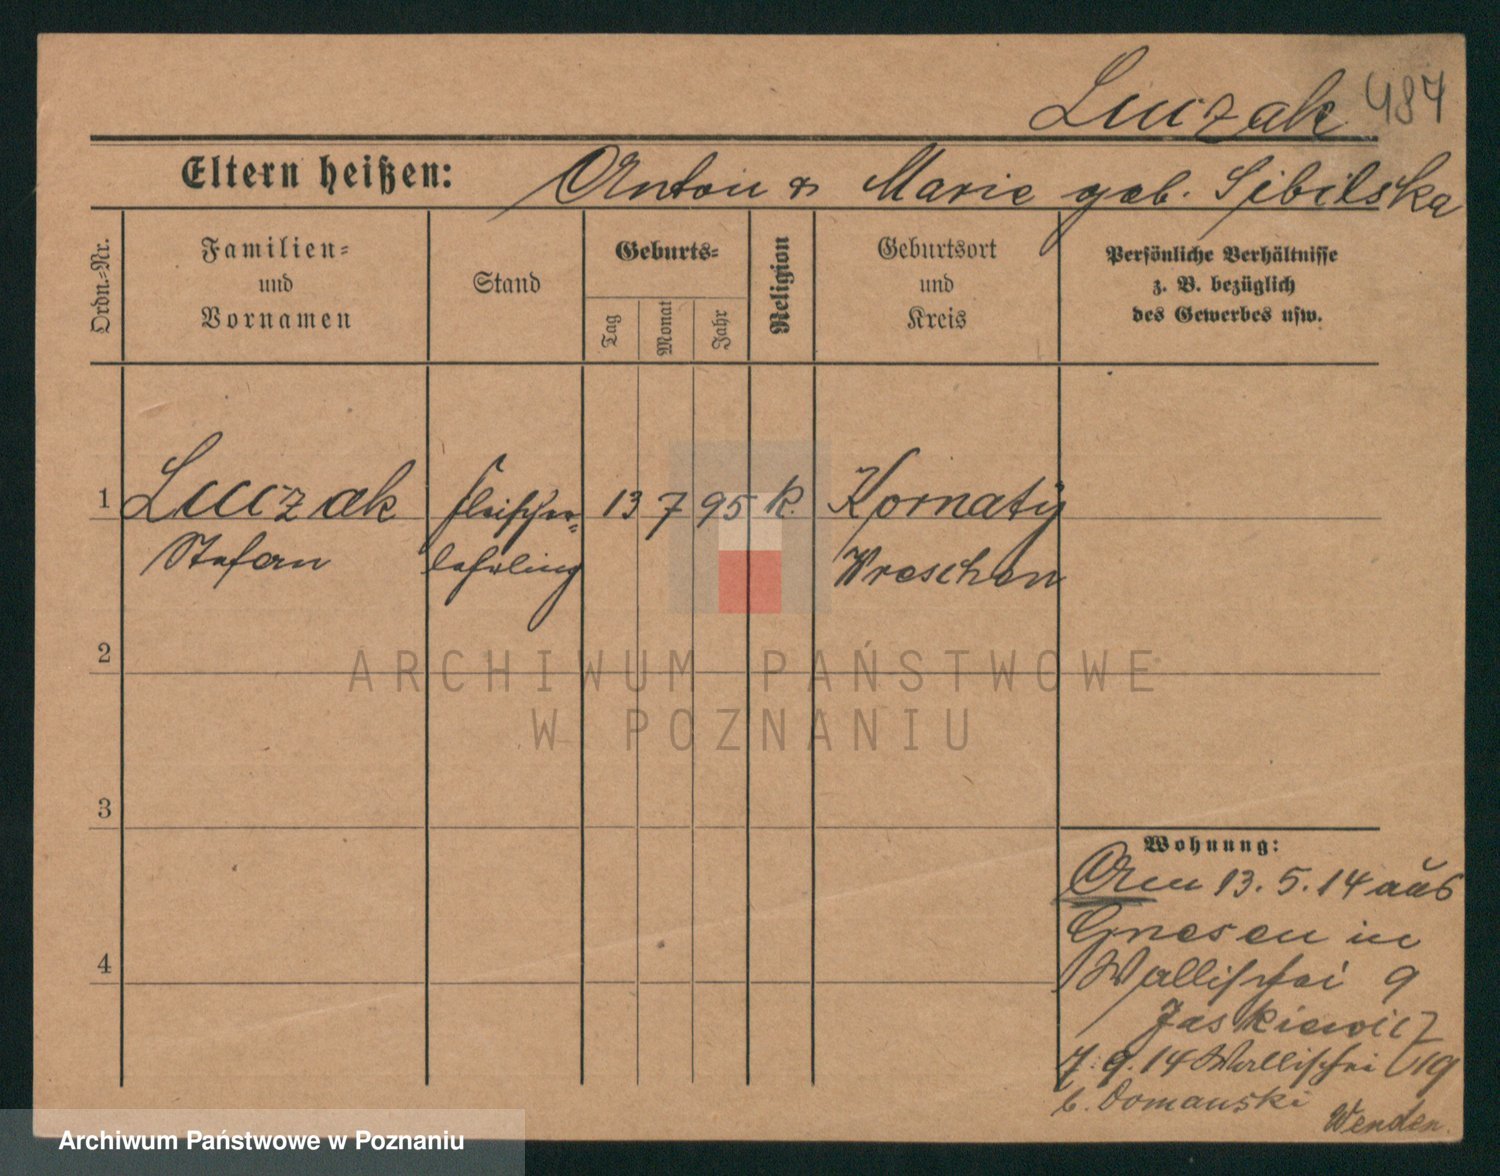 Luczak 487
Eltern heißen: Anton & Marie geb. Sibilska
Ordn.-Nr.
Familien-
und
Vornamen
Stand
Geburts-
Tag
Monat
Jahr
Religion
Geburtsort
und
Kreis
Persönliche Verhältnisse
z. B. bezüglich
des Gewerbes usw.
1 Luczak Fleischer- 13 7 95 k. Kornaty
Stefan lehrling Wreschen
2
ARCHIWUM PAŃSTWOWE
W POZNANIU
3
Wohnung:
Am 13.5.14 aus
Gnesen in
4
Wallischei 9
Jaskiewicz
7.9.14 Wallischei 19
b. Domanski
Wenden.
Archiwum Państwowe w Poznaniu